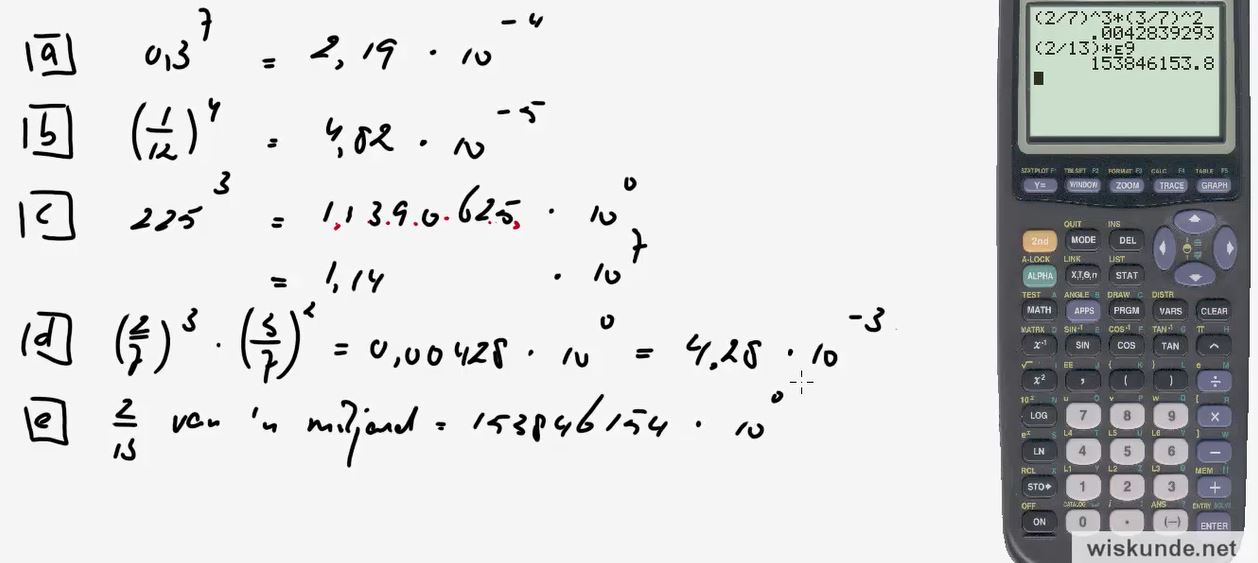 a 0,3^7 = 2,19 · 10^-4
b (1/12)^4 = 4,82 · 10^-5
c 225^3 = 1,1 3.9.0.625, · 10^0
= 1,14 · 10^7
d (2/7)^3 · (3/7)^2 = 0,00428 · 10^0 = 4,28 · 10^-3
e 2/13 van 'n miljard = 153846154 · 10^0
(2/7)^3*(3/7)^2
.0042839293
(2/13)*E9
153846153.8
STATPLOT F1 TBLSET F2 FORMAT F3 CALC F4 TABLE F5
Y= WINDOW ZOOM TRACE GRAPH
QUIT INS
2nd MODE DEL
A-LOCK LINK LIST
ALPHA X,T,θ,n STAT
TEST A ANGLE B DRAW C DISTR
MATH APPS PRGM VARS CLEAR
MATRX D SIN-1 E COS-1 F TAN-1 G π H
x-1 SIN COS TAN ^
√ I EE J { K } L e M
x² , ( ) ÷
10^x N u O v P w Q [ R
LOG 7 8 9 ×
e^x S L4 T L5 U L6 V ] W
LN 4 5 6 −
RCL X L1 Y L2 Z L3 θ MEM "
STO▸ 1 2 3 +
OFF CATALOG i : ANS ? ENTRY SOLVE
ON 0 . (−) ENTER
wiskunde.net